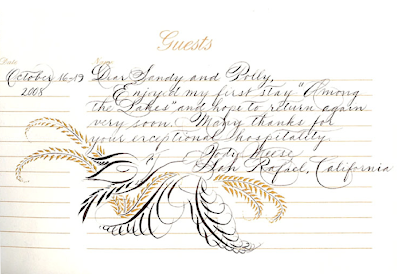 Guests
Date Name
October 16-19 Dear Sandy and Polly,
2008 Enjoyed my first stay "Among
the Lakes" and hope to return again
very soon. Many thanks for
your exceptional hospitality.
San Rafael, California